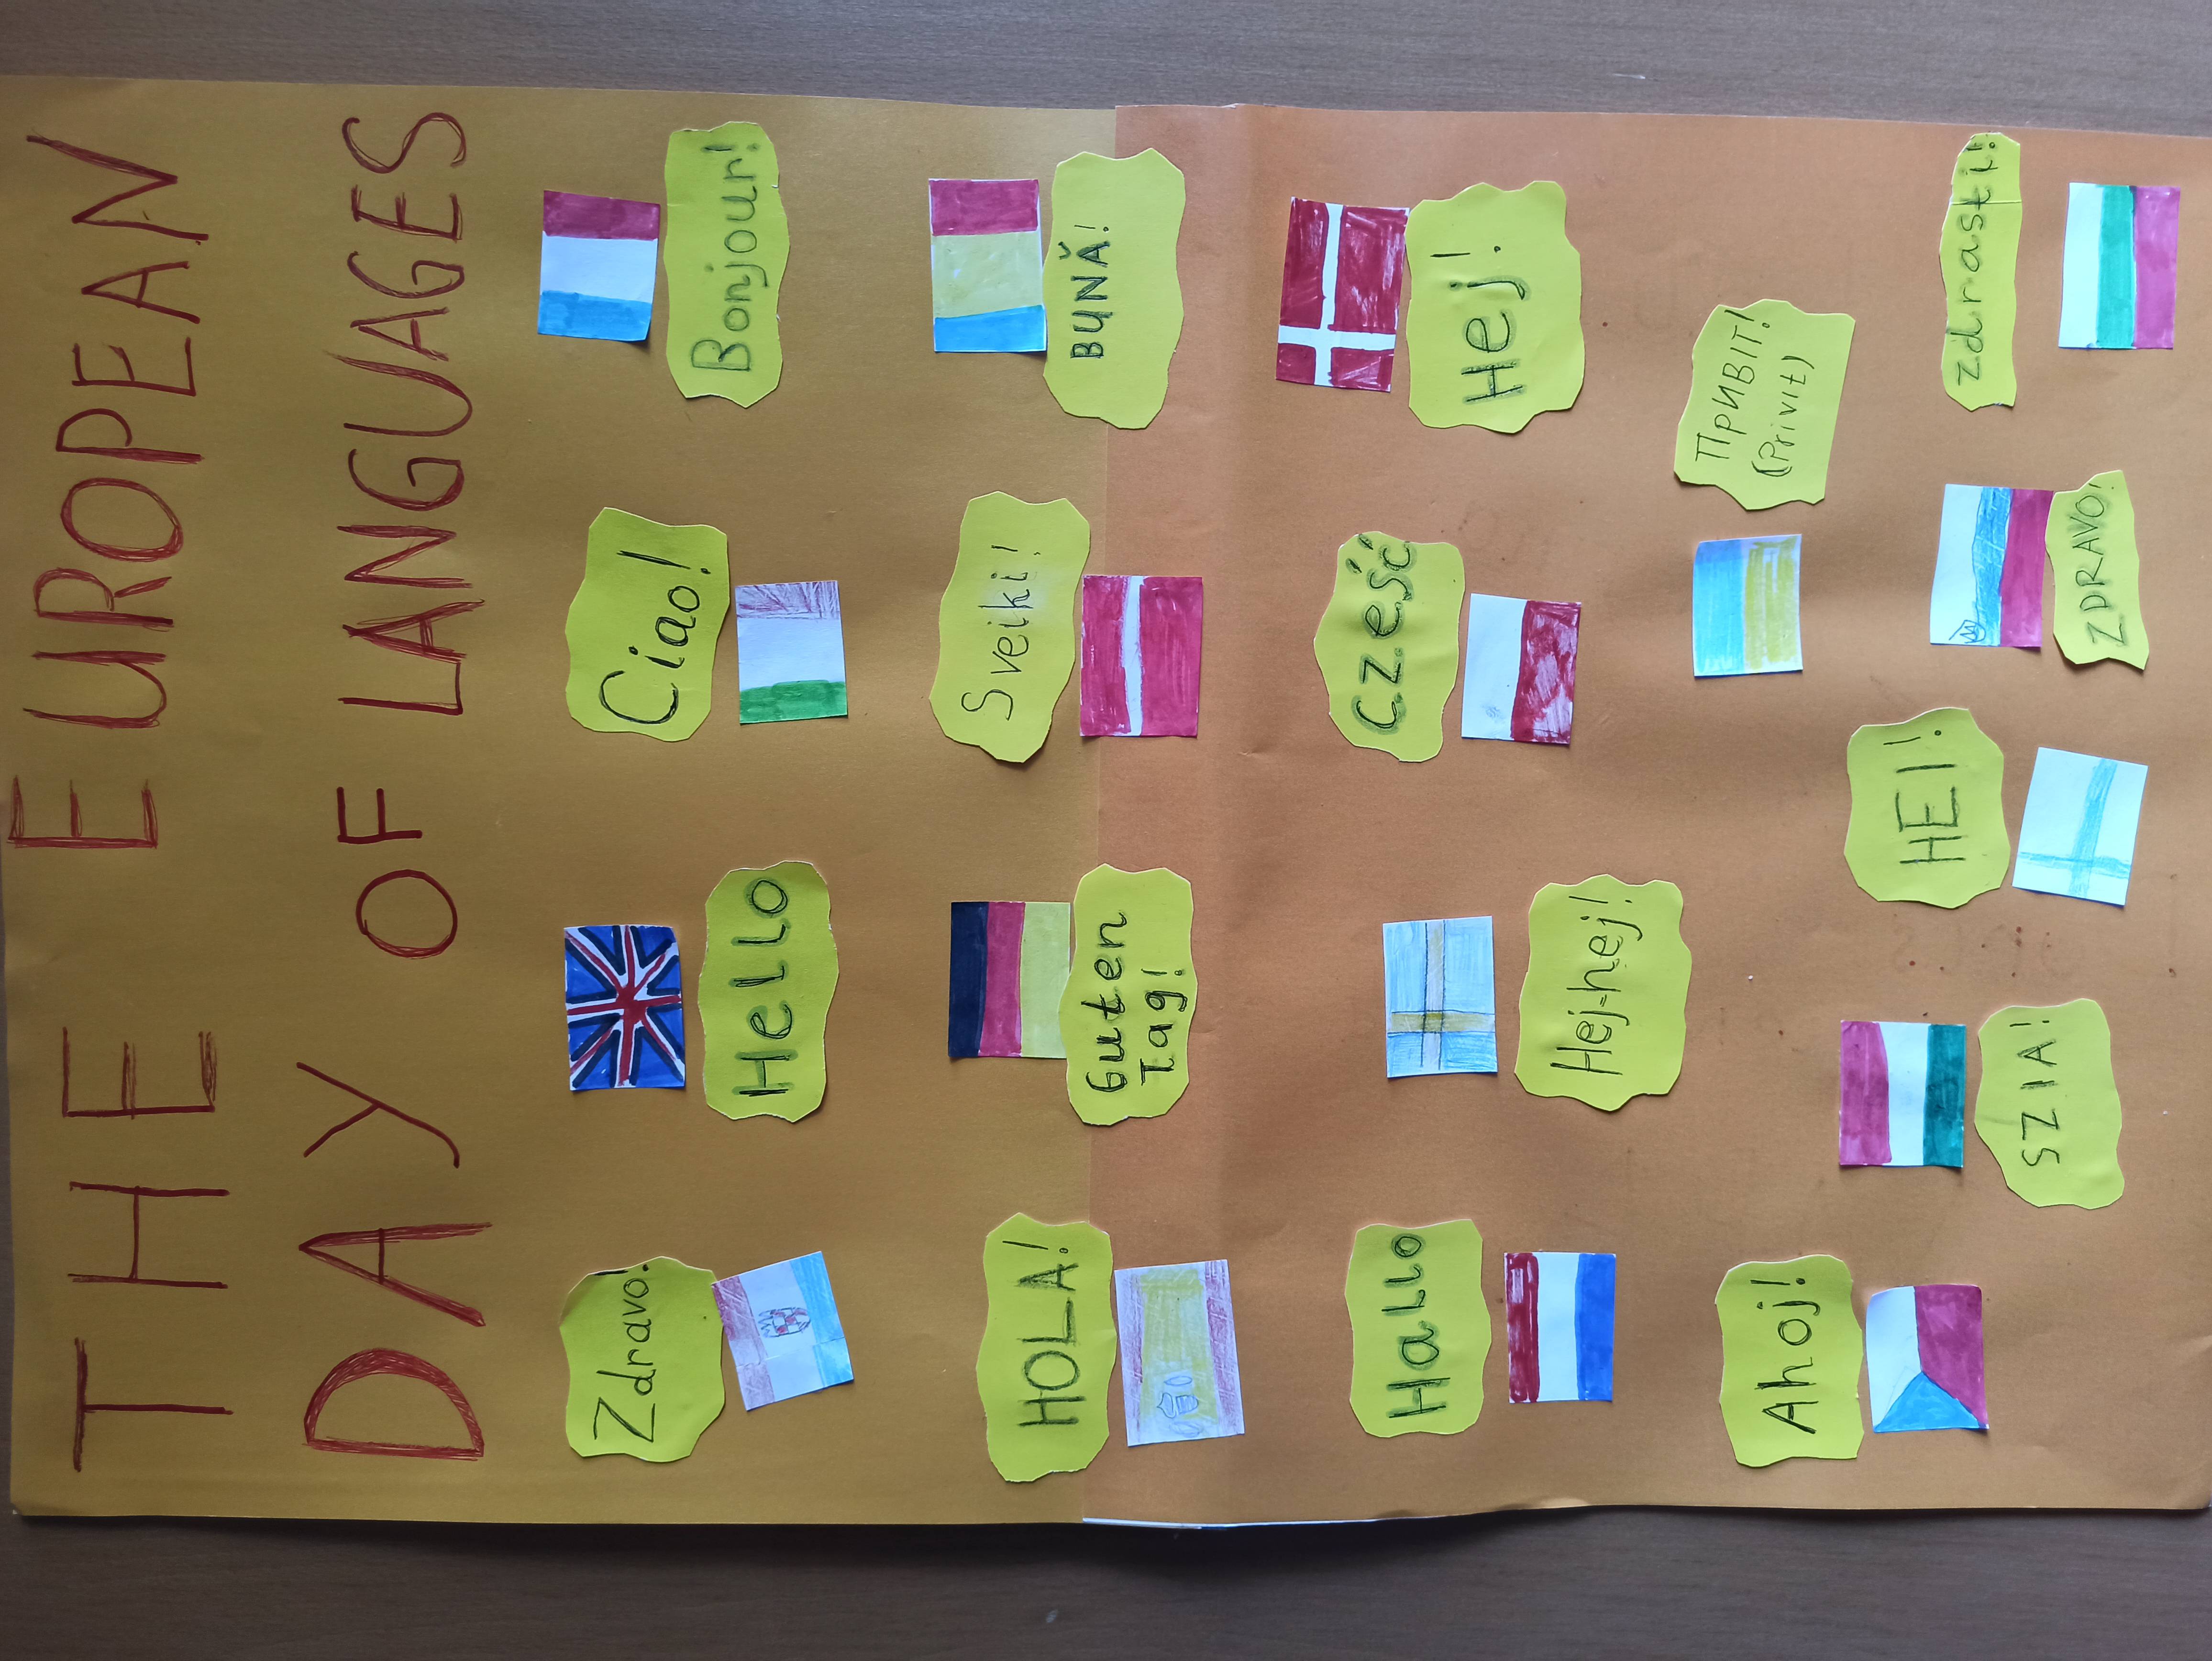 THE EUROPEAN
DAY OF LANGUAGES
Zdravo!
Hello
Ciao!
Bonjour!
HOLA!
Guten
Tag!
Sveiki!
BUNĂ!
Hallo
Hej-hej!
CZEŚĆ
Hej!
Ahoj!
SZIA!
HEI!
ПРИВІТ!
(Privit)
ZDRAVO!
zdrasti!